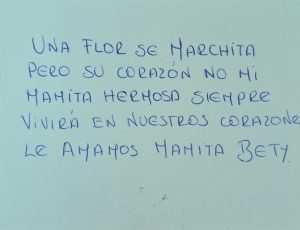 UNA FLOR SE MARCHITA
PERO SU CORAZÓN NO MI
MAMITA HERMOSA SIEMPRE
VIVIRÁ EN NUESTROS CORAZONE
LE AMAMOS MAMITA BETY